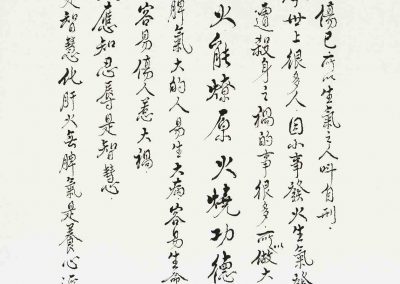 傷己所以生氣之人叫自刑。
世上很多人因小事發火生氣發
遭殺身之禍的事很多所以做大
火能燎原火燒功德
脾氣大的人易生大病容易生命
容易傷人惹大禍
應知忍辱是智慧
智慧化肝火去脾氣是養心